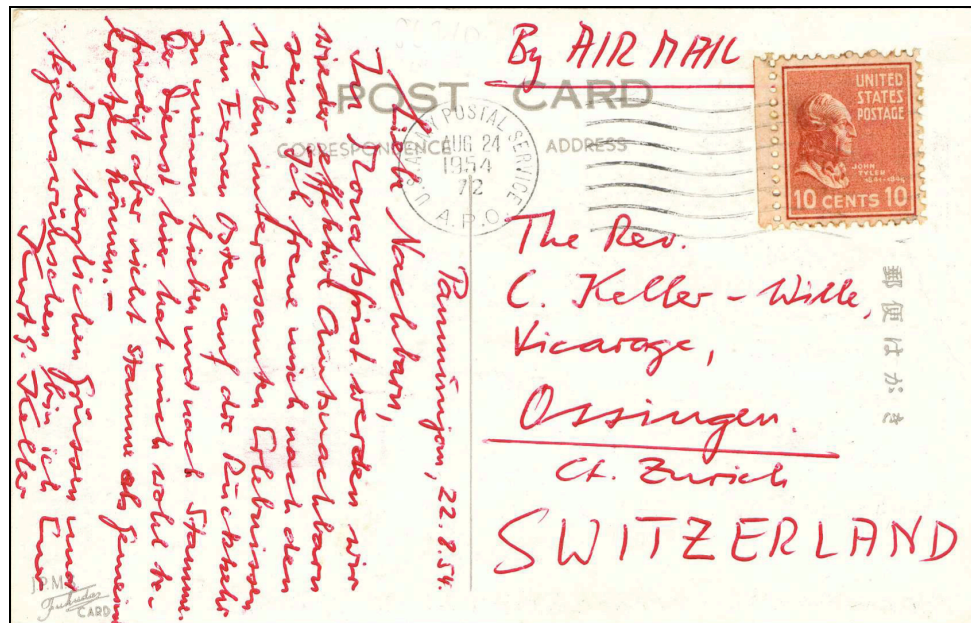 By AIR MAIL
POST CARD
CORRESPONDENCE
ADDRESS
U.S. ARMY POSTAL SERVICE
AUG 24
1954
72
A.P.O.
UNITED
STATES
POSTAGE
JOHN
TYLER
1841-1845
10 CENTS 10
The Rev.
C. Keller - Wille,
Vicarage,
Ossingen.
Ct. Zurich
SWITZERLAND
郵便はがき
Panmunjom, 22.8.54.
Liebe Nachbarn,
In Monatsfrist werden wir
wieder effektiv Amtsnachbarn
sein. Ich freue mich nach den
vielen interessanten Erlebnissen
im Fernen Osten auf die Rückkehr
zu meinen Lieben und nach
Der Dienst hier hat mich wohl be-
friedigt aber nicht als
ersetzen können. -
Mit herzlichen Grüssen und
Segenswünschen bin ich Euer
Kurt Keller
J.P.M.
Fukudas
CARD